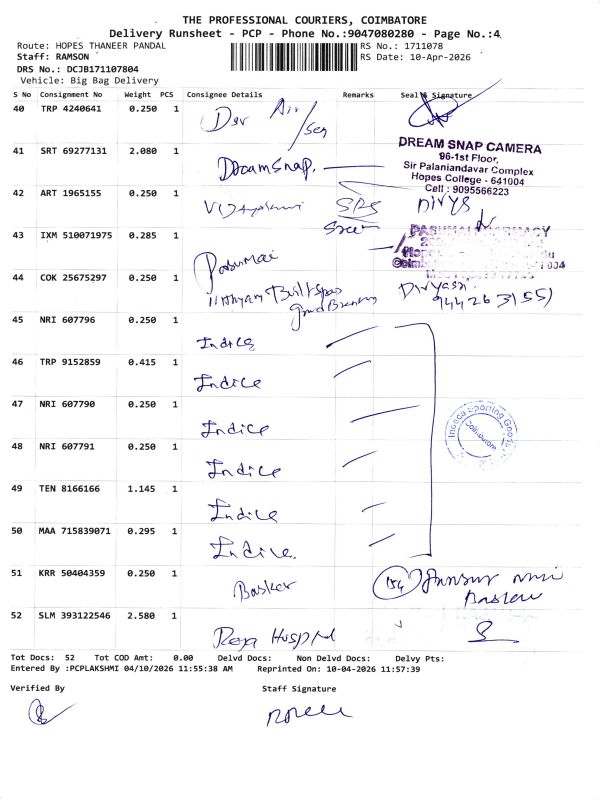 THE PROFESSIONAL COURIERS, COIMBATORE
Delivery Runsheet - PCP - Phone No.:9047080280 - Page No.:4
Route: HOPES THANEER PANDAL RS No.: 1711078
Staff: RAMSON RS Date: 10-Apr-2026
DRS No.: DCJB171107804
Vehicle: Big Bag Delivery
S No Consignment No Weight PCS Consignee Details Remarks Seal & Signature
40 TRP 4240641 0.250 1 Dev Air /
41 SRT 69277131 2.080 1 DreamSnap.
DREAM SNAP CAMERA
96-1st Floor,
Sir Palaniandavar Complex
Hopes College - 641004
Cell : 9095566223
42 ART 1965155 0.250 1
43 IXM 510071975 0.285 1 Pasumai
44 COK 25675297 0.250 1
45 NRI 607796 0.250 1 Indice
46 TRP 9152859 0.415 1 Indice
47 NRI 607790 0.250 1 Indice
48 NRI 607791 0.250 1 Indice
Indeca Sporting Goods
Coimbatore
49 TEN 8166166 1.145 1 Indice
50 MAA 715839071 0.295 1 Indice.
51 KRR 50404359 0.250 1 Basker
52 SLM 393122546 2.580 1 Hospital
Tot Docs: 52 Tot COD Amt: 0.00 Delvd Docs: Non Delvd Docs: Delvy Pts:
Entered By :PCPLAKSHMI 04/10/2026 11:55:38 AM Reprinted On: 10-04-2026 11:57:39
Verified By Staff Signature